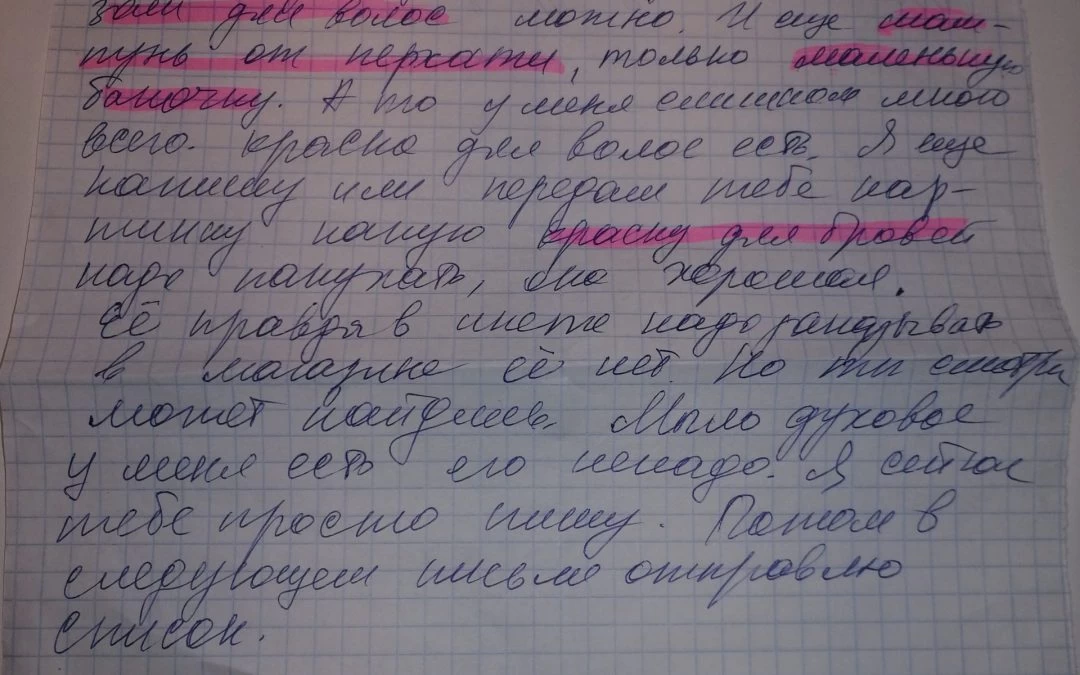 для волос можно. И еще шам-
пунь от перхоти, только маленькую
баночку. А то у меня слишком много
всего. Краска для волос есть. Я еще
напишу или передам тебе кар-
тинку какую краску для бровей
надо покупать, она хорошая.
Её правда в инете надо заказывать
в магазине её нет. Но ты смотри
может найдешь. Мыло духовое
у меня есть его ненадо. Я сейчас
тебе просто пишу. Потом в
следующем письме отправлю
список.